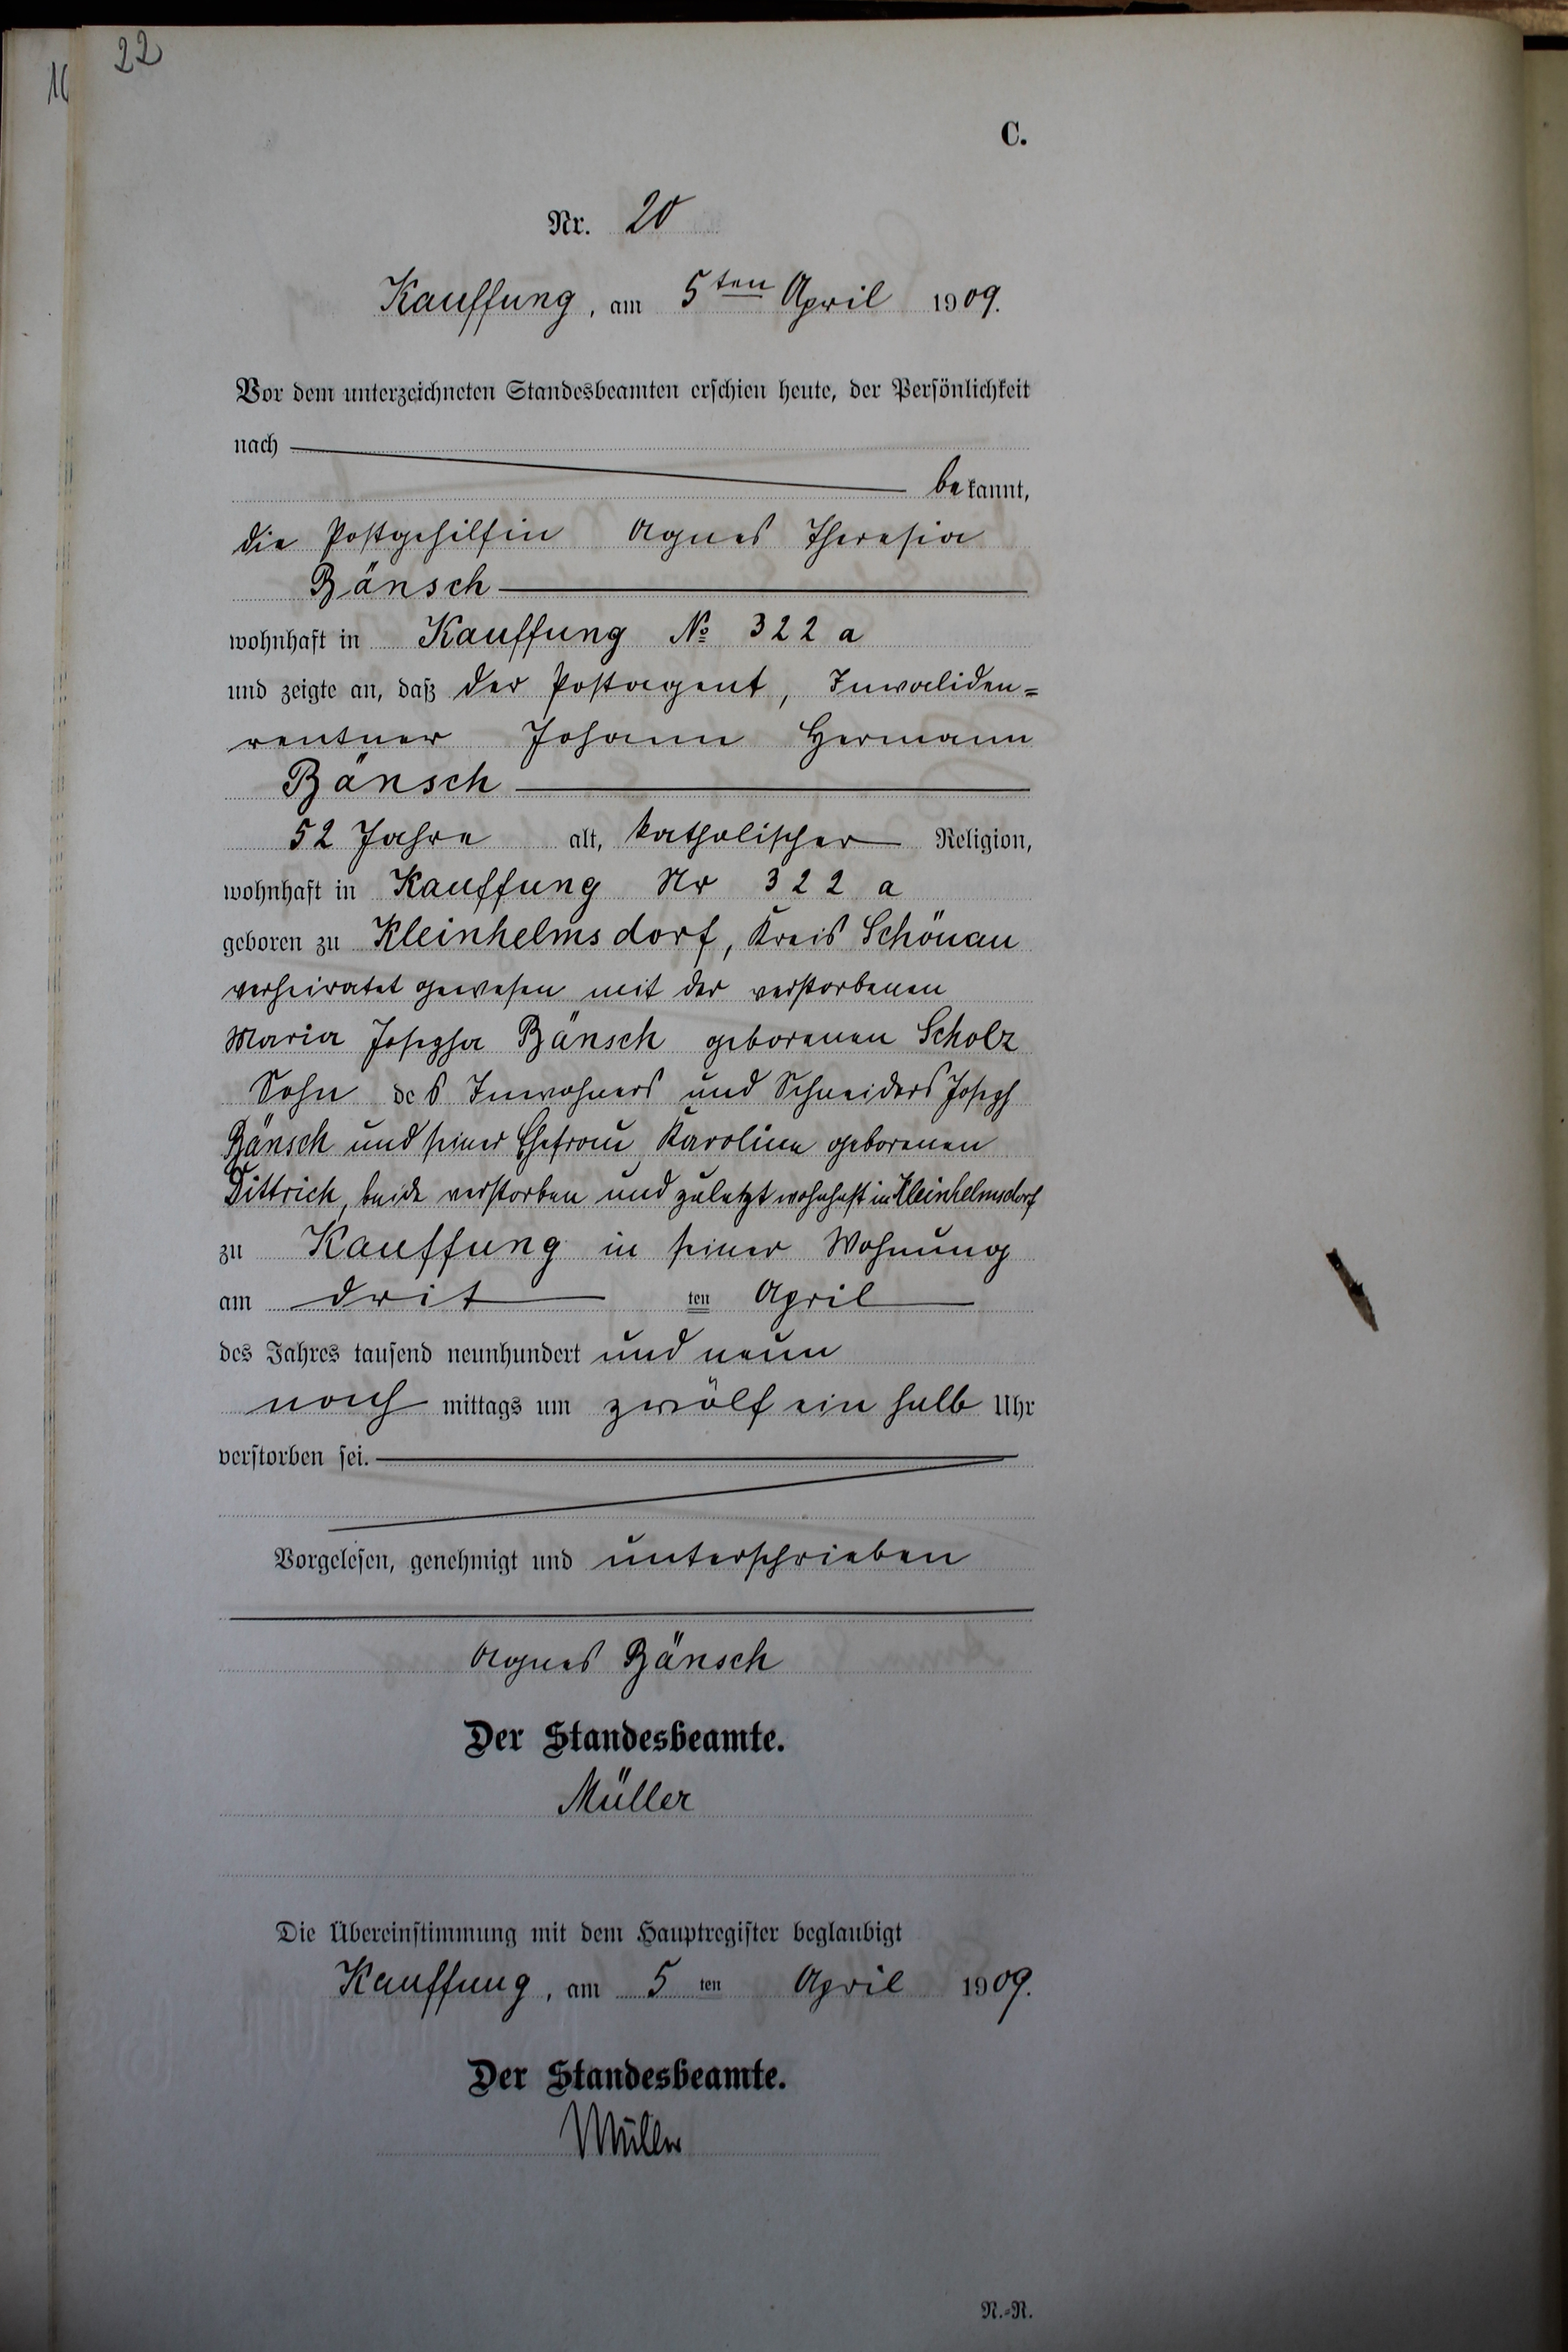 22
C.
Nr. 20
Kauffung, am 5ten April 1909.
Vor dem unterzeichneten Standesbeamten erschien heute, der Persönlichkeit
nach
bekannt,
die Postgehilfin Agnes Theresia
Bänsch
wohnhaft in Kauffung No 322 a
und zeigte an, daß der Postagent, Invaliden=
rentner Johann Hermann
Bänsch
52 Jahre alt, katholischer Religion,
wohnhaft in Kauffung Nr 322 a
geboren zu Kleinhelmsdorf, Kreis Schönau
verheiratet gewesen mit der verstorbenen
Maria Josepha Bänsch geborenen Scholz
Sohn des Inwohners und Schneiders Joseph
Bänsch und seiner Ehefrau Karoline geborenen
Dittrich, beide verstorben und zuletzt wohnhaft in Kleinhelmsdorf
zu Kauffung in seiner Wohnung
am drit ten April
des Jahres tausend neunhundert und neun
nach mittags um zwölf ein halb Uhr
verstorben sei.
Vorgelesen, genehmigt und unterschrieben
Agnes Bänsch
Der Standesbeamte.
Müller
Die Übereinstimmung mit dem Hauptregister beglaubigt
Kauffung, am 5 ten April 1909.
Der Standesbeamte.
Müller
N.=N.